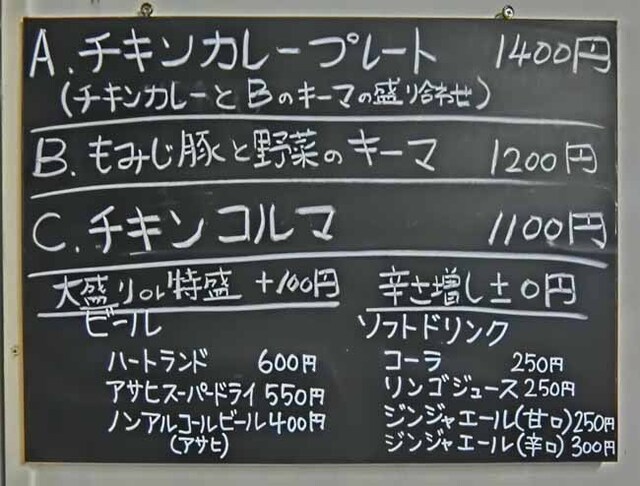 A. チキンカレープレート 1400円
(チキンカレーとBのキーマの盛り合わせ)
B. もみじ豚と野菜のキーマ 1200円
C. チキンコルマ 1100円
大盛りor特盛 +100円 辛さ増し±0円
ビール ソフトドリンク
ハートランド 600円 コーラ 250円
アサヒスーパードライ 550円 リンゴジュース 250円
ノンアルコールビール 400円 ジンジャエール(甘口) 250円
(アサヒ) ジンジャエール(辛口) 300円